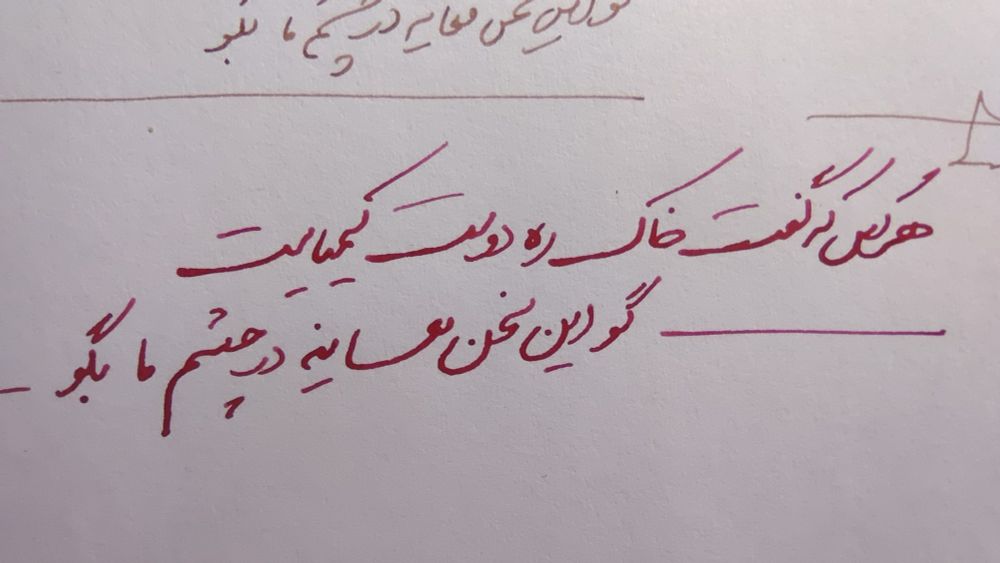 گو این سخن معاینه در چشم ما بگو
هر کس که گفت خاک ره دوست کیمیاست
گو این سخن معاینه در چشم ما بگو